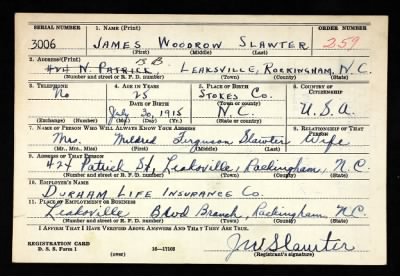 SERIAL NUMBER 1. NAME (Print) ORDER NUMBER
3006 JAMES WOODROW SLAWTER 259
(First) (Middle) (Last)
2. ADDRESS (Print)
424 N. PATRICK LEAKSVILLE, ROCKINGHAM, N.C.
(Number and street or R. F. D. number) (Town) (County) (State)
3. TELEPHONE 4. AGE IN YEARS 5. PLACE OF BIRTH 6. COUNTRY OF CITIZENSHIP
No 25 STOKES CO.
DATE OF BIRTH (Town or county)
July 30, 1915 N.C. U.S.A.
(Exchange) (Number) (Mo.) (Day) (Yr.) (State or country)
7. NAME OF PERSON WHO WILL ALWAYS KNOW YOUR ADDRESS 8. RELATIONSHIP OF THAT PERSON
Mrs. Mildred Ferguson Slawter Wife
(Mr., Mrs., Miss) (First) (Middle) (Last)
9. ADDRESS OF THAT PERSON
424 Patrick St, Leaksville, Rockingham, N.C.
(Number and street or R. F. D. number) (Town) (County) (State)
10. EMPLOYER'S NAME
DURHAM LIFE INSURANCE CO.
11. PLACE OF EMPLOYMENT OR BUSINESS
Leaksville Blvd Branch, Rockingham N.C.
(Number and street or R. F. D. number) (Town) (County) (State)
I AFFIRM THAT I HAVE VERIFIED ABOVE ANSWERS AND THAT THEY ARE TRUE.
REGISTRATION CARD
D. S. S. Form 1 16-17105 JW Slawter
(over) (Registrant's signature)